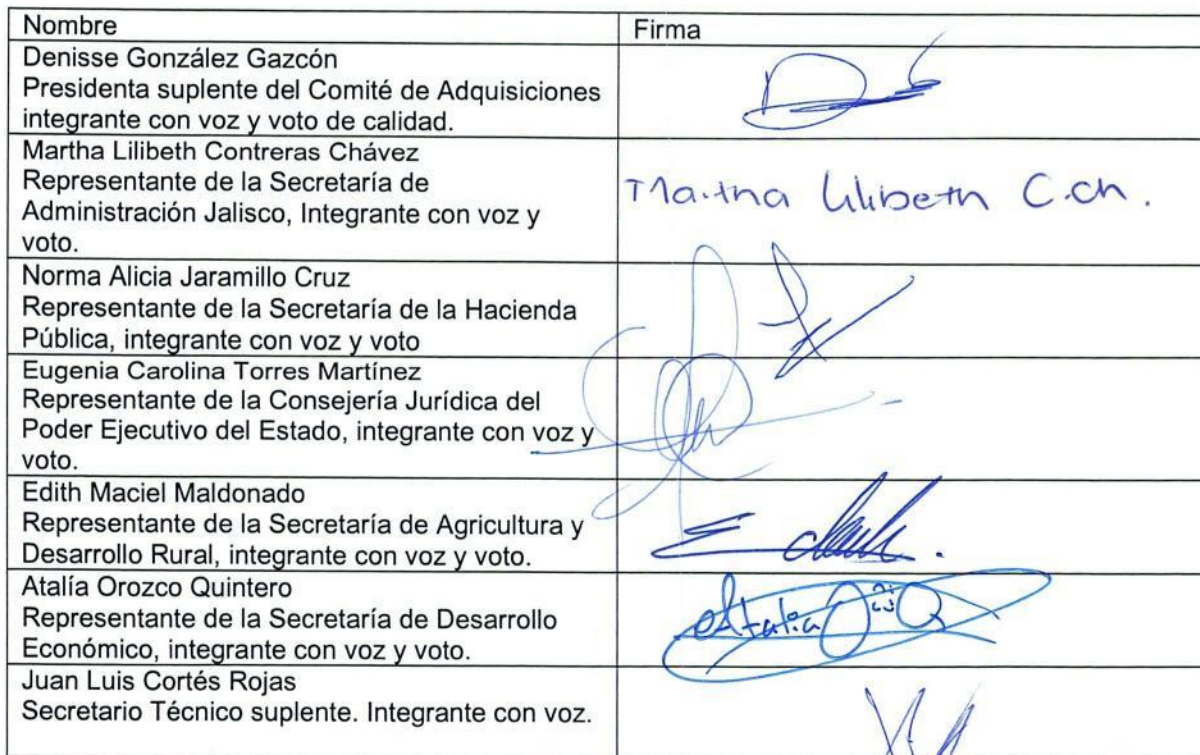 Nombre
Firma
Denisse González Gazcón
Presidenta suplente del Comité de Adquisiciones
integrante con voz y voto de calidad.
Martha Lilibeth Contreras Chávez
Representante de la Secretaría de
Administración Jalisco, Integrante con voz y
voto.
Martha Lilibeth C.Ch.
Norma Alicia Jaramillo Cruz
Representante de la Secretaría de la Hacienda
Pública, integrante con voz y voto
Eugenia Carolina Torres Martínez
Representante de la Consejería Jurídica del
Poder Ejecutivo del Estado, integrante con voz y
voto.
Edith Maciel Maldonado
Representante de la Secretaría de Agricultura y
Desarrollo Rural, integrante con voz y voto.
Atalía Orozco Quintero
Representante de la Secretaría de Desarrollo
Económico, integrante con voz y voto.
Atalia
Juan Luis Cortés Rojas
Secretario Técnico suplente. Integrante con voz.